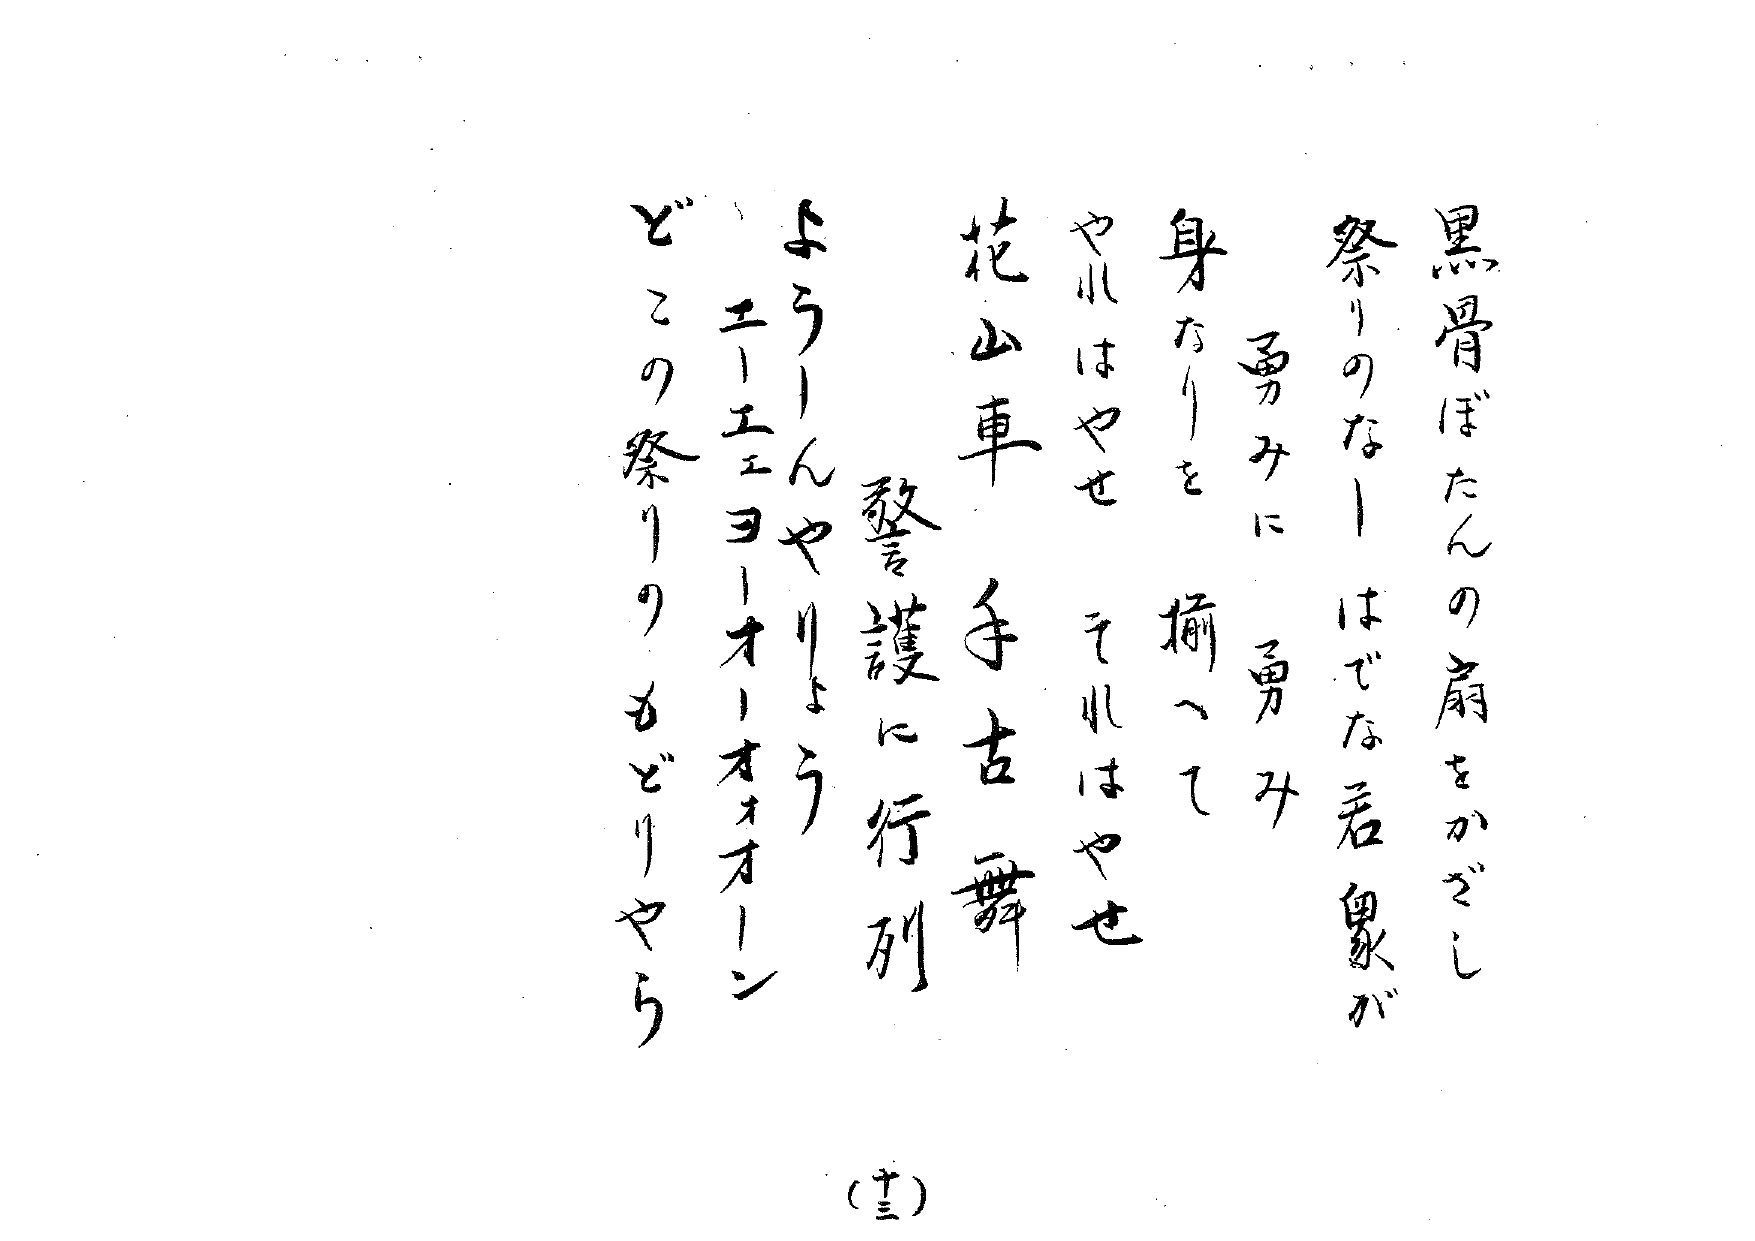 黒骨ぼたんの扇をかざし
祭りのなー はでな若衆が
勇みに 勇み
身なりを 揃へて
やれはやせ それはやせ
花山車 手古舞
警護に行列
ようーんやりょう
エーエェヨーオーオォオーン
どこの祭りのもどりやら
(十三)